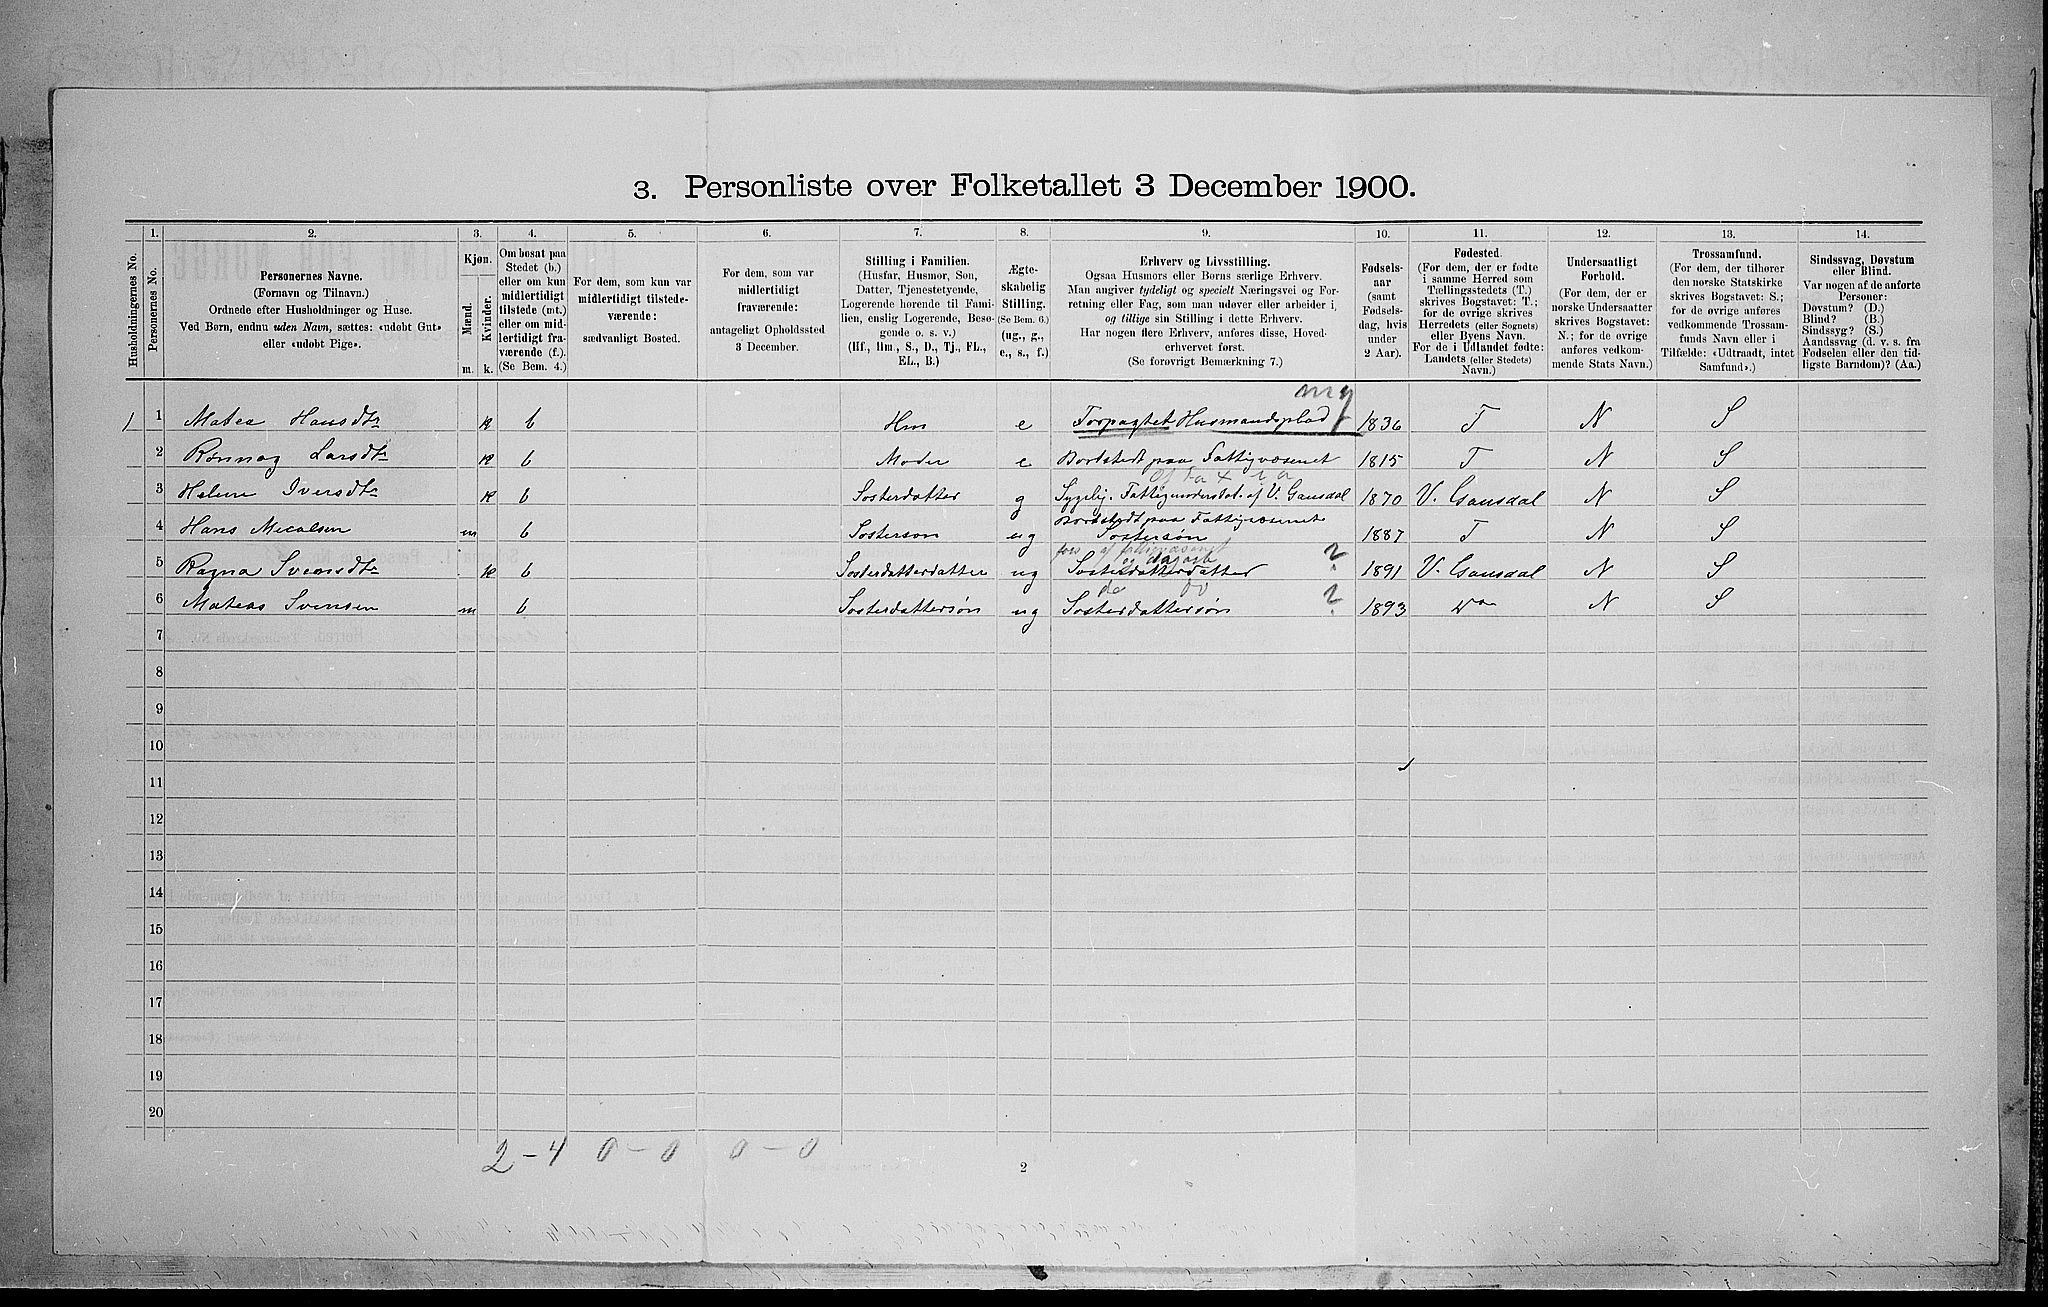 3. Personliste over Folketallet 3 December 1900.
1. 2. 3. 4. 5. 6. 7. 8. 9. 10. 11. 12. 13. 14.
Husholdningernes No.
Personernes No.
Personernes Navne.
(Fornavn og Tilnavn.)
Ordnede efter Husholdninger og Huse.
Ved Børn, endnu uden Navn, sættes: «udøbt Gut»
eller «udøbt Pige».
Kjøn.
Mænd.
Kvinder.
m. k.
Om bosat paa
Stedet (b.)
eller om kun
midlertidigt
tilstede (mt.)
eller om mid-
lertidigt fra-
værende (f.).
(Se Bem. 4.)
For dem, som kun var
midlertidigt tilstede-
værende:
sædvanligt Bosted.
For dem, som var
midlertidigt
fraværende:
antageligt Opholdssted
3 December.
Stilling i Familien.
(Husfar, Husmor, Søn,
Datter, Tjenestetyende,
Logerende hørende til Fami-
lien, enslig Logerende, Besø-
gende o. s. v.)
(Hf., Hm., S., D., Tj., FL.,
EL., B.)
Ægte-
skabelig
Stilling.
(Se Bem. 6.)
(ug., g.,
e., s., f.)
Erhverv og Livsstilling.
Ogsaa Husmors eller Børns særlige Erhverv.
Man angiver tydeligt og specielt Næringsvei og For-
retning eller Fag, som man udøver eller arbeider i,
og tillige sin Stilling i dette Erhverv.
Har nogen flere Erhverv, anføres disse, Hoved-
erhvervet først.
(Se forøvrigt Bemærkning 7.)
Fødsels-
aar
(samt
Fødsels-
dag, hvis
under
2 Aar).
Fødested.
(For dem, der er fødte
i samme Herred som
Tællingsstedets (T.)
skrives Bogstavet: T.;
for de øvrige skrives
Herredets (eller Sognets)
eller Byens Navn.
For de i Udlandet fødte:
Landets (eller Stedets)
Navn.)
Undersaatligt
Forhold.
(For dem, der er
norske Undersaatter
skrives Bogstavet:
N.; for de øvrige
anføres vedkom-
mende Stats Navn.)
Trossamfund.
(For dem, der tilhører
den norske Statskirke
skrives Bogstavet: S.;
for de øvrige anføres
vedkommende Trossam-
funds Navn eller i
Tilfælde: «Udtraadt, intet
Samfund».)
Sindssvag, Døvstum
eller Blind.
Var nogen af de anførte
Personer:
Døvstum? (D.)
Blind? (B.)
Sindssyg? (S.)
Aandssvag (d. v. s. fra
Fødselen eller den tid-
ligste Barndom)? (Aa.)
my
1) 1 Matea Hansdtr k b Hm e Forpagtet Husmandsplad 1836 T N S
2 Rønnog Larsdtr k b Moder e Bortstedt paa Fattigvæsenet 1815 T N S
3 Helene Iversdtr k b Søsterdatter g Sygelig. Fattigunderstøt. af V. Gausdal 1870 V. Gausdal N S
Bortstedt paa Fattigvæsenet
4 Hans Micalsen m b Søsterson ug Søstersøn 1887 T N S
fors. af fattigvæsenet
5 Ragna Svensdtr k b Søsterdatterdatter ug Søsterdatterdatter ? 1891 V. Gausdal N S
do do
6 Mateas Svensen m b Søsterdattersøn ug Søsterdattersøn ? 1893 N S
7
8
9
10
11
12
13
14
15
16
17
18
19
20
2 - 4 0 - 0 0 - 0
2